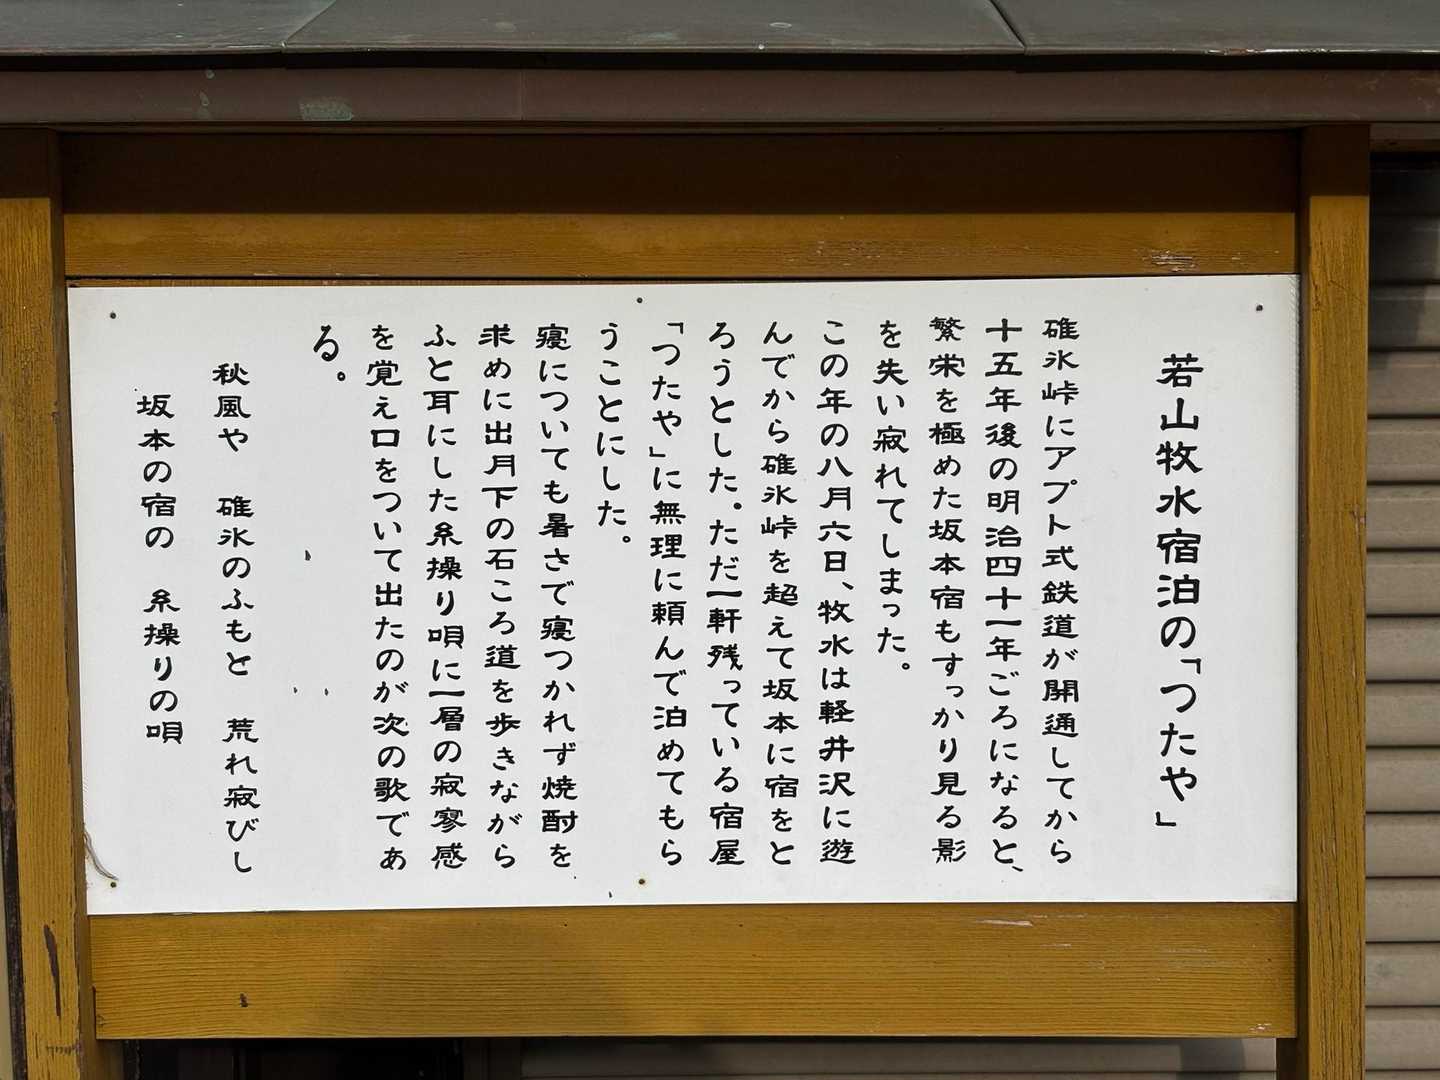 若山牧水宿泊の「つたや」
碓氷峠にアプト式鉄道が開通してから
十五年後の明治四十一年ごろになると、
繁栄を極めた坂本宿もすっかり見る影
を失い寂れてしまった。
この年の八月六日、牧水は軽井沢に遊
んでから碓氷峠を超えて坂本に宿をと
ろうとした。ただ一軒残っている宿屋
「つたや」に無理に頼んで泊めてもら
うことにした。
寝についても暑さで寝つかれず焼酎を
求めに出月下の石ころ道を歩きながら
ふと耳にした糸操り唄に一層の寂寥感
を覚え口をついて出たのが次の歌であ
る。
秋風や 碓氷のふもと 荒れ寂びし
坂本の宿の 糸操りの唄